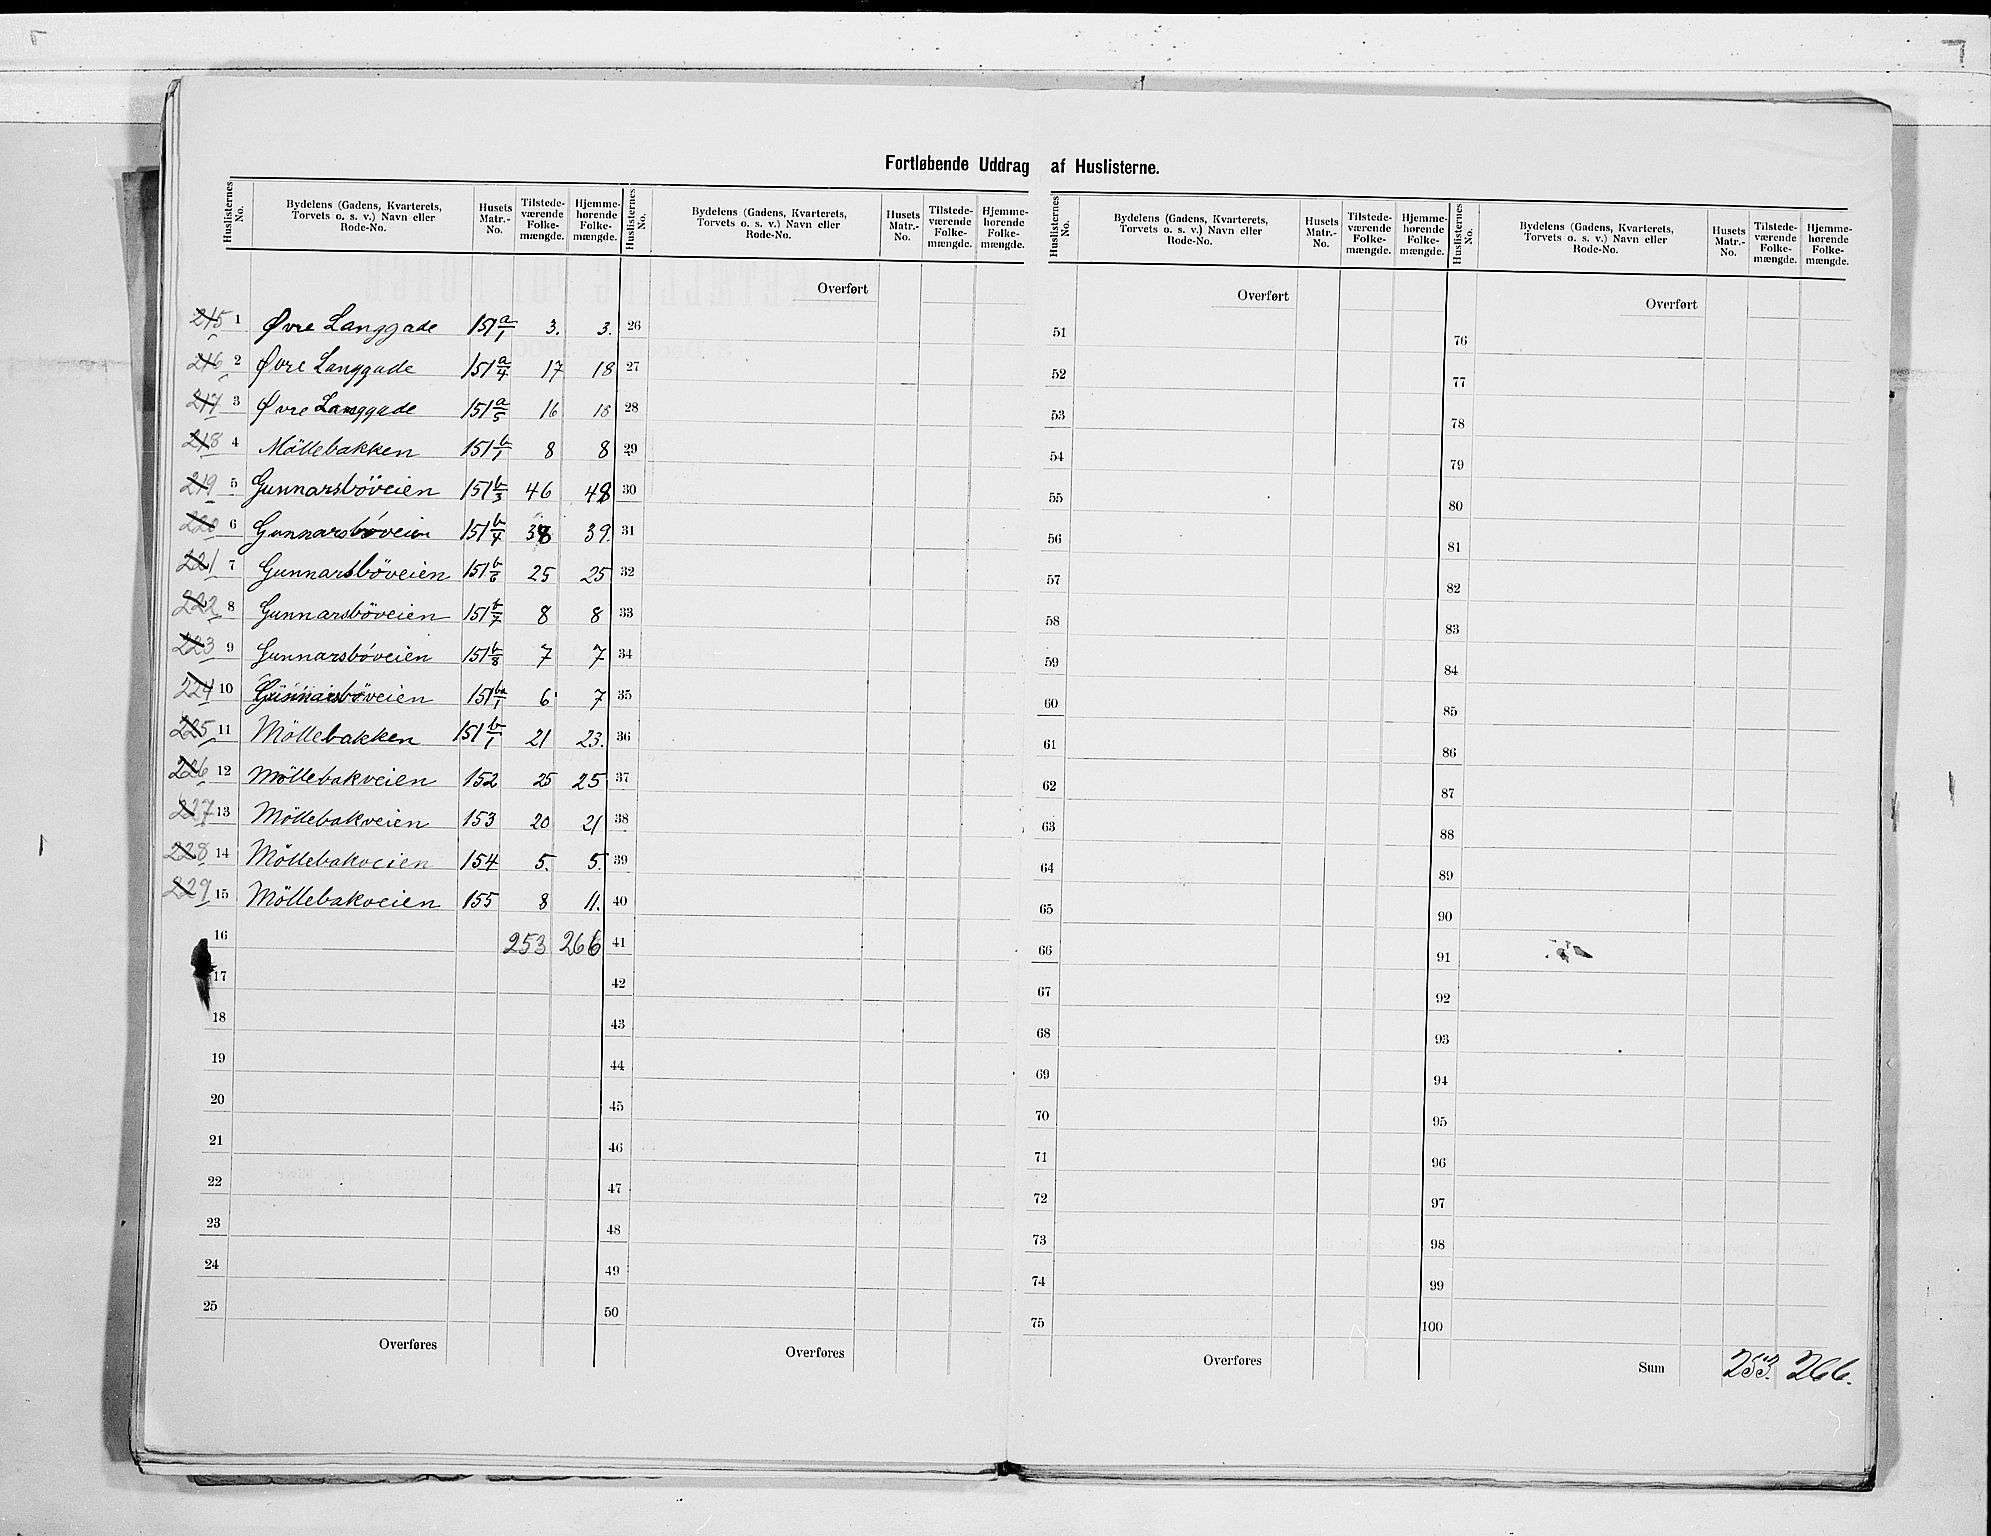 Fortløbende Uddrag af Huslisterne.
Huslisternes No. Bydelens (Gadens, Kvarterets, Torvets o. s. v.) Navn eller Rode-No. Husets Matr.-No. Tilstede-værende Folke-mængde. Hjemme-hørende Folke-mængde.
215 1 Øvre Langgade 151 a/1 3. 3.
216 2 Øvre Langgade 151 a/4 17 18
217 3 Øvre Langgade 151 a/5 16 18
218 4 Möllebakken 151 b/1 8 8
219 5 Gunnarsböveien 151 b/3 46 48
220 6 Gunnarsböveien 151 b/4 38 39.
221 7 Gunnarsböveien 151 b/6 25 25
222 8 Gunnarsböveien 151 b/7 8 8
223 9 Gunnarsböveien 151 b/8 7 7
224 10 Gunnarsböveien 151 ba/1 6 7
225 11 Möllebakken 151 b/1 21 23.
226 12 Möllebakveien 152 25 25
227 13 Möllebakveien 153 20 21
228 14 Möllebakveien 154 5. 5.
229 15 Möllebakveien 155 8 11.
16 253 266
17
18
19
20
21
22
23
24
25
Overføres
Huslisternes No. Bydelens (Gadens, Kvarterets, Torvets o. s. v.) Navn eller Rode-No. Husets Matr.-No. Tilstede-værende Folke-mængde. Hjemme-hørende Folke-mængde.
Overført
26
27
28
29
30
31
32
33
34
35
36
37
38
39
40
41
42
43
44
45
46
47
48
49
50
Overføres
Huslisternes No. Bydelens (Gadens, Kvarterets, Torvets o. s. v.) Navn eller Rode-No. Husets Matr.-No. Tilstede-værende Folke-mængde. Hjemme-hørende Folke-mængde.
Overført
51
52
53
54
55
56
57
58
59
60
61
62
63
64
65
66
67
68
69
70
71
72
73
74
75
Overføres
Huslisternes No. Bydelens (Gadens, Kvarterets, Torvets o. s. v.) Navn eller Rode-No. Husets Matr.-No. Tilstede-værende Folke-mængde. Hjemme-hørende Folke-mængde.
Overført
76
77
78
79
80
81
82
83
84
85
86
87
88
89
90
91
92
93
94
95
96
97
98
99
100
Sum 253. 266.